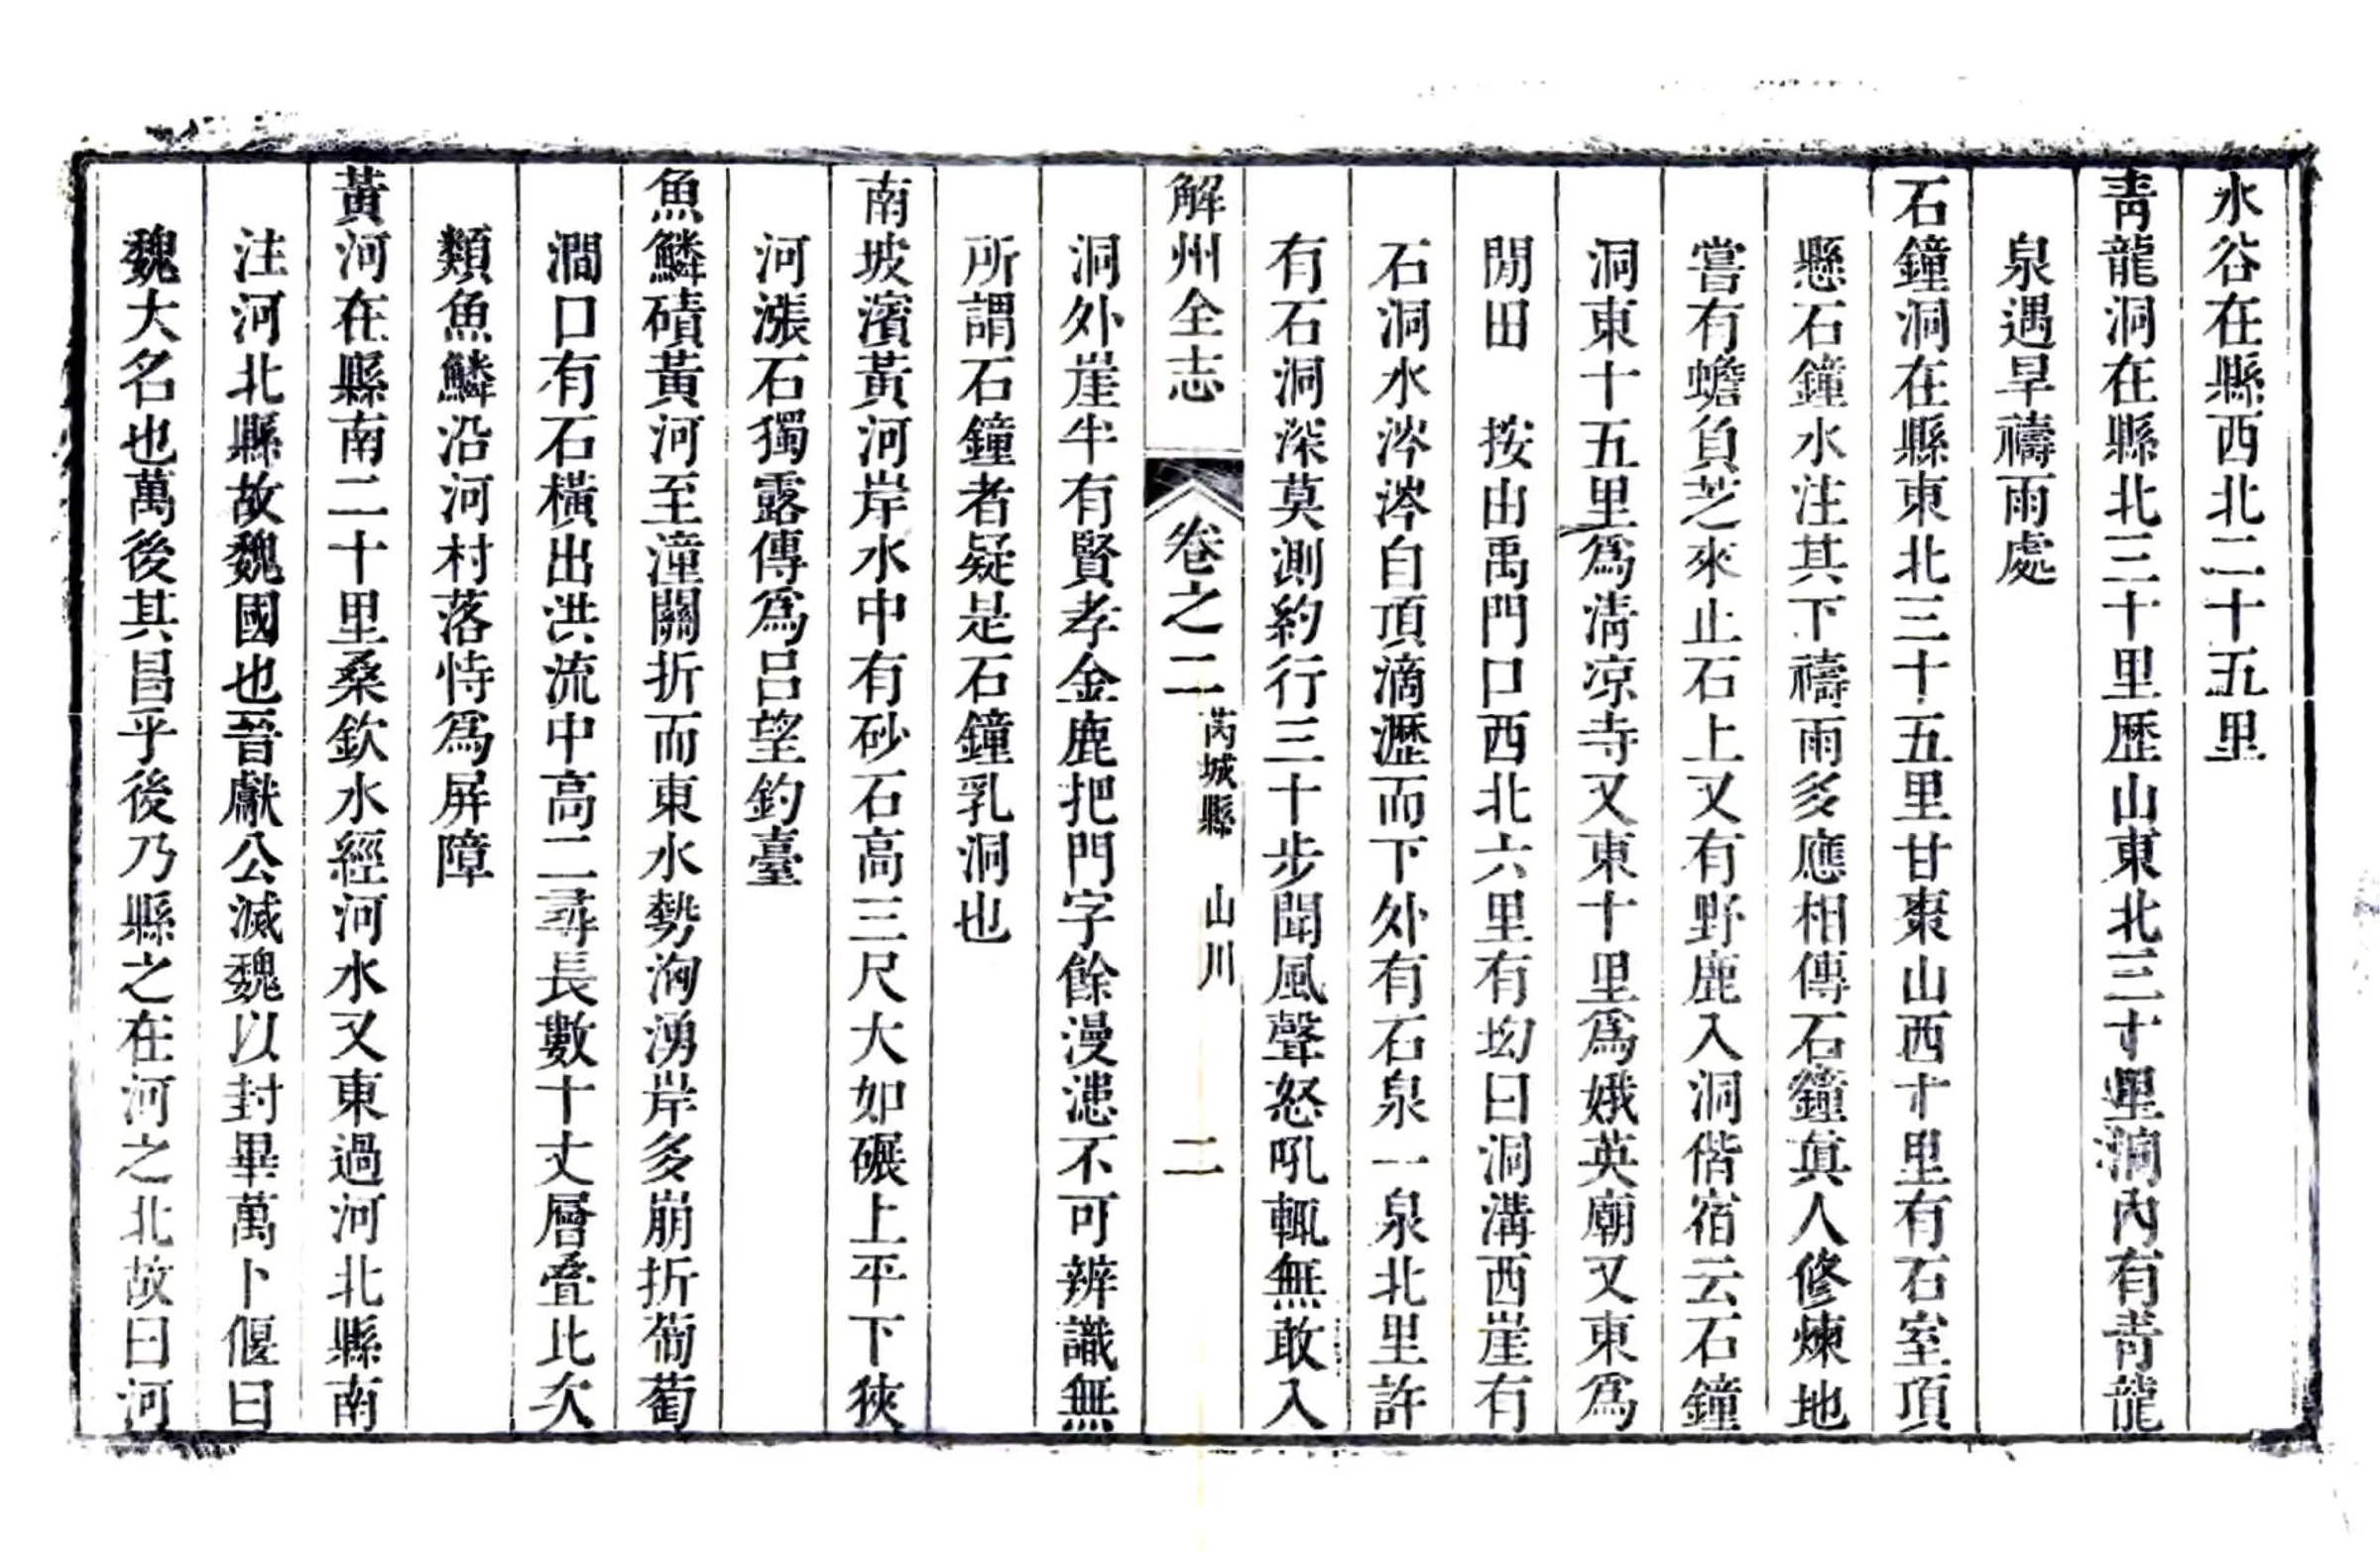 水谷在縣西北二十五里
青龍洞在縣北三十里歷山東北三十里洞內有青龍
泉遇旱禱雨處
石鐘洞在縣東北三十五里甘棗山西十里有石室頂
懸石鐘水注其下禱雨多應相傳石鐘眞人修煉地
嘗有蟾負芝來止石上又有野鹿入洞偕宿云石鐘
洞東十五里爲淸凉寺又東十里爲娥英廟又東爲
閒田　按由禹門口西北六里有坳曰洞溝西崖有
石洞水涔涔自頂滴瀝而下外有石泉一泉北里許
有石洞深莫測約行三十步聞風聲怒吼輒無敢入
解州全志　卷之二　芮城縣　山川　二
洞外崖半有賢孝金鹿把門字餘漫漶不可辨識無
所謂石鐘者疑是石鐘乳洞也
南坡濱黃河岸水中有砂石高三尺大如碾上平下狹
河漲石獨露傳爲呂望釣臺
魚鱗磧黃河至潼關折而東水勢洶湧岸多崩折葡萄
澗口有石橫出洪流中高二尋長數十丈層叠比次
類魚鱗沿河村落恃爲屏障
黃河在縣南二十里桑欽水經河水又東過河北縣南
注河北縣故魏國也晉獻公滅魏以封畢萬卜偃曰
魏大名也萬後其昌乎後乃縣之在河之北故曰河